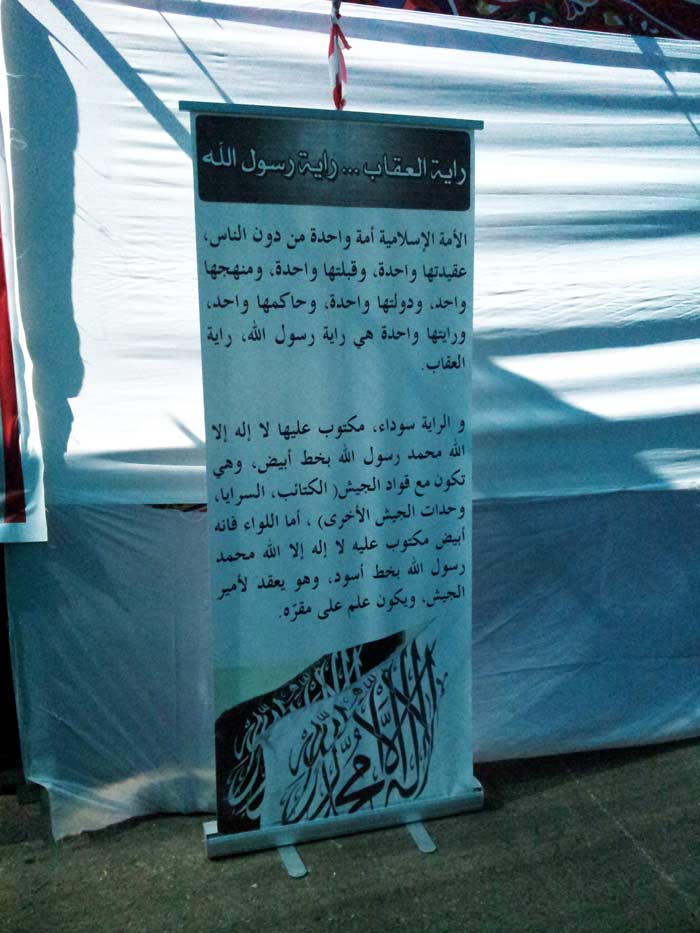 راية العقاب ... راية رسول الله
الأمة الإسلامية أمة واحدة من دون الناس،
عقيدتها واحدة، وقبلتها واحدة، ومنهجها
واحد، ودولتها واحدة، وحاكمها واحد،
ورايتها واحدة هي راية رسول الله، راية
العقاب.
و الراية سوداء، مكتوب عليها لا إله إلا
الله محمد رسول الله بخط أبيض، وهي
تكون مع قواد الجيش( الكتائب، السرايا،
وحدات الجيش الأخرى) ، أما اللواء فانه
أبيض مكتوب عليه لا إله إلا الله محمد
رسول الله بخط أسود، وهو يعقد لأمير
الجيش، ويكون علم على مقرّه.
لا إله إلا الله محمد رسول الله